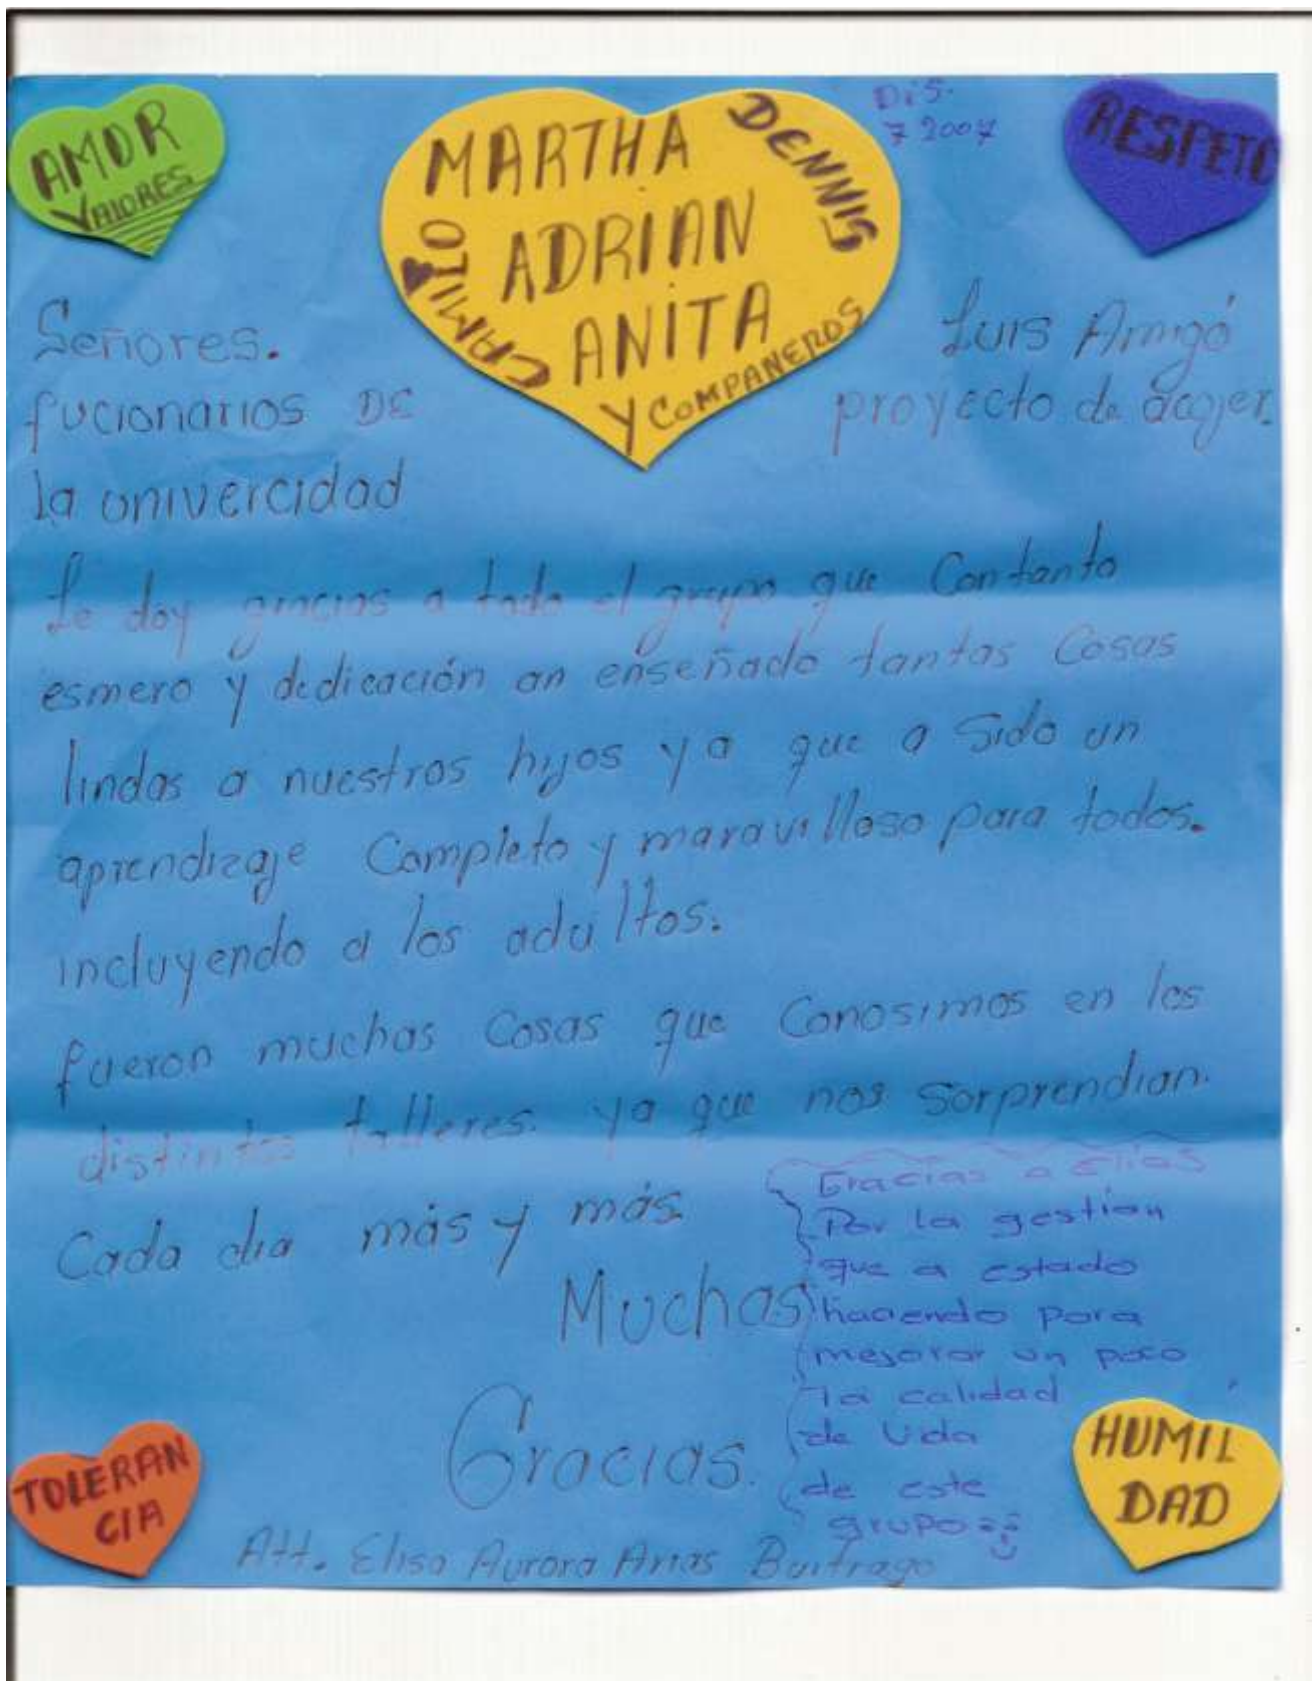 AMOR
VALORES
MARTHA
ADRIAN
ANITA
DENNIS
CAMILO
Y COMPANEROS
Dis.
7 2007
RESPETO
Señores.
fucionarios DE
la univercidad
Luis Amigó
proyecto de acojer.
Le doy gracias a todo el grupo que Contanto
esmero y dedicación an enseñado tantas Cosas
lindas a nuestros hijos ya que a Sido un
aprendizaje Completo y maravilloso para todos.
incluyendo a los adultos.
fueron muchas Cosas que Conosimos en los
distintos talleres. ya que nos sorprendian.
Cada dia más y más.
Muchas
Gracias.
Gracias a Elias
Por la gestion
que a estado
haciendo para
mejorar un poco
la calidad
de vida
de este
grupo
TOLERAN
CIA
HUMIL
DAD
Att. Elisa Aurora Arias Buitrago